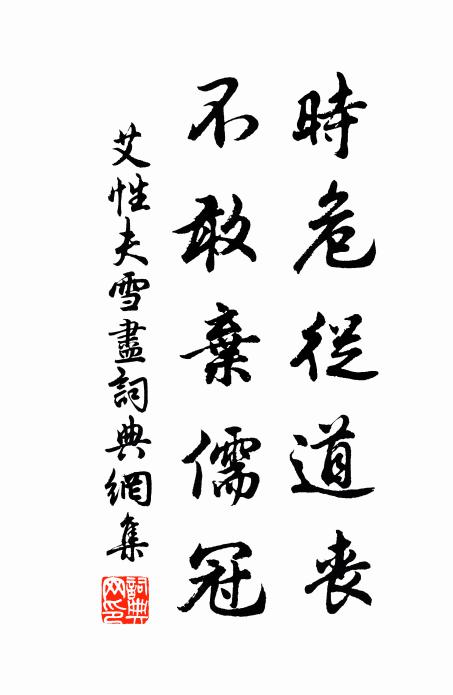 時危從道喪
不敢棄儒冠
艾性夫雪盡詞典網集
詞典
网印